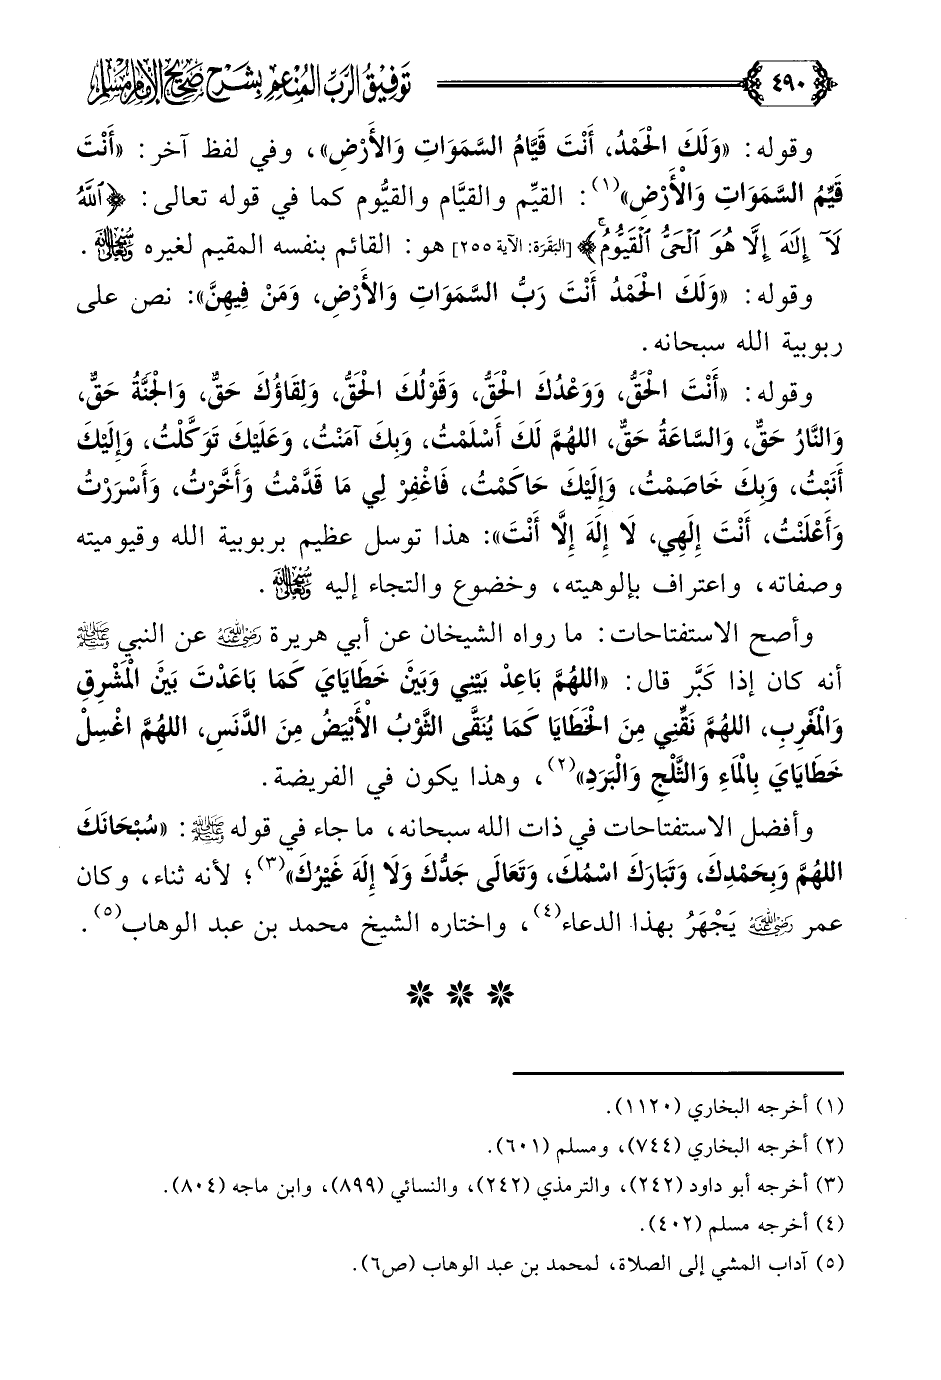 ٤٩٠ تَوفِيقُ الرَّبِّ المُنْعِمِ بِشَرْحِ صَحِيْحِ الإِمَامِ مُسْلِمٍ
وقوله: «وَلَكَ الْحَمْدُ، أَنْتَ قَيَّامُ السَّمَوَاتِ وَالْأَرْضِ»، وفي لفظ آخر: «أَنْتَ
قَيِّمُ السَّمَوَاتِ وَالْأَرْضِ»(١): القيِّم والقيَّام والقيُّوم كما في قوله تعالى: ﴿ٱللَّهُ
لَآ إِلَٰهَ إِلَّا هُوَ ٱلْحَىُّ ٱلْقَيُّومُ ۚ﴾ [البَقَرَة: الآية ٢٥٥] هو: القائم بنفسه المقيم لغيره سبحانه وتعالى.
وقوله: «وَلَكَ الْحَمْدُ أَنْتَ رَبُّ السَّمَوَاتِ وَالْأَرْضِ، وَمَنْ فِيهِنَّ»: نص على
ربوبية الله سبحانه.
وقوله: «أَنْتَ الْحَقُّ، وَوَعْدُكَ الْحَقُّ، وَقَوْلُكَ الْحَقُّ، وَلِقَاؤُكَ حَقٌّ، وَالْجَنَّةُ حَقٌّ،
وَالنَّارُ حَقٌّ، وَالسَّاعَةُ حَقٌّ، اللهُمَّ لَكَ أَسْلَمْتُ، وَبِكَ آمَنْتُ، وَعَلَيْكَ تَوَكَّلْتُ، وَإِلَيْكَ
أَنَبْتُ، وَبِكَ خَاصَمْتُ، وَإِلَيْكَ حَاكَمْتُ، فَاغْفِرْ لِي مَا قَدَّمْتُ وَأَخَّرْتُ، وَأَسْرَرْتُ
وَأَعْلَنْتُ، أَنْتَ إِلَهِي، لَا إِلَهَ إِلَّا أَنْتَ»: هذا توسل عظيم بربوبية الله وقيوميته
وصفاته، واعتراف بإلوهيته، وخضوع والتجاء إليه سبحانه وتعالى.
وأصح الاستفتاحات: ما رواه الشيخان عن أبي هريرة رضي الله عنه عن النبي ﷺ
أنه كان إذا كَبَّر قال: «اللهُمَّ بَاعِدْ بَيْنِي وَبَيْنَ خَطَايَايَ كَمَا بَاعَدْتَ بَيْنَ الْمَشْرِقِ
وَالْمَغْرِبِ، اللهُمَّ نَقِّنِي مِنَ الْخَطَايَا كَمَا يُنَقَّى الثَّوْبُ الْأَبْيَضُ مِنَ الدَّنَسِ، اللهُمَّ اغْسِلْ
خَطَايَايَ بِالْمَاءِ وَالثَّلْجِ وَالْبَرَدِ»(٢)، وهذا يكون في الفريضة.
وأفضل الاستفتاحات في ذات الله سبحانه، ما جاء في قوله ﷺ: «سُبْحَانَكَ
اللهُمَّ وَبِحَمْدِكَ، وَتَبَارَكَ اسْمُكَ، وَتَعَالَى جَدُّكَ وَلَا إِلَهَ غَيْرُكَ»(٣)؛ لأنه ثناء، وكان
عمر رضي الله عنه يَجْهَرُ بهذا الدعاء(٤)، واختاره الشيخ محمد بن عبد الوهاب(٥).
(١) أخرجه البخاري (١١٢٠).
(٢) أخرجه البخاري (٧٤٤)، ومسلم (٦٠١).
(٣) أخرجه أبو داود (٢٤٢)، والترمذي (٢٤٢)، والنسائي (٨٩٩)، وابن ماجه (٨٠٤).
(٤) أخرجه مسلم (٤٠٢).
(٥) آداب المشي إلى الصلاة، لمحمد بن عبد الوهاب (ص٦).